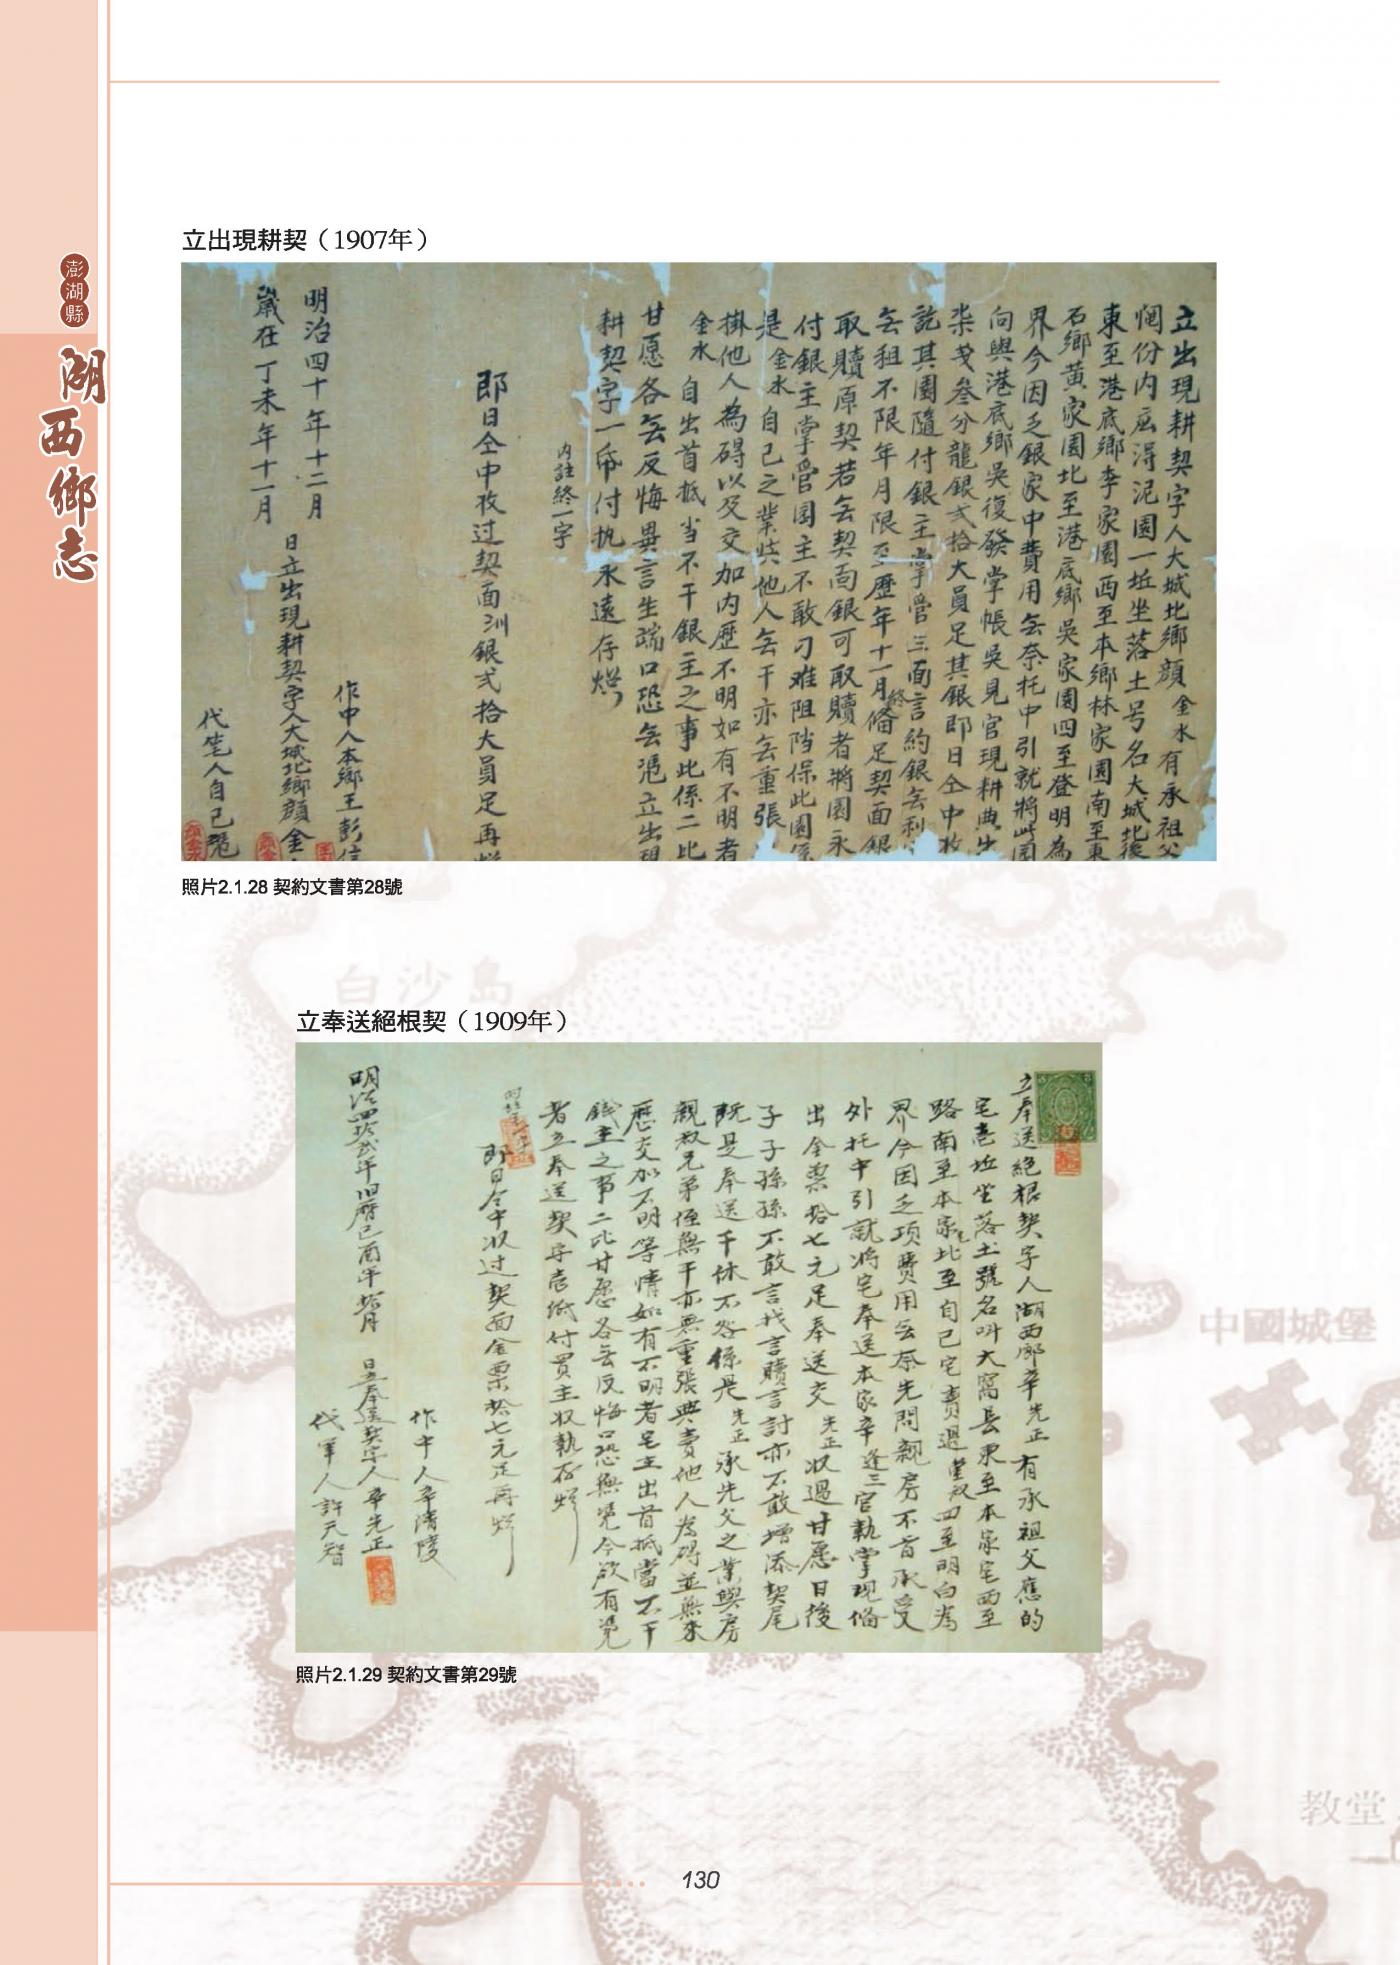 澎湖縣
湖西鄉志
立出現耕契（1907年）
立出現耕契字人大城北鄉顏金水有承祖父
份内应淂泥園一坵坐落土号名大城北後
東至港底鄉李家園西至本鄉林家園南至東
石鄉黄家園北至港底鄉吳家園四至登明為
界今因乏銀家中費用無奈托中引就將此园
向與港底鄉吳復發掌帳吳見官現耕典出
柒戔叁分龍銀弍拾大員足其銀即日仝中收
訖其園隨付銀主掌管三面言約銀無利
無租不限年月限至歷年十一月終偹足契面銀
取贖原契若無契面銀可取贖者將園永
付銀主掌管园主不敢刁难阻挡保此園係
是金水自己之業於他人無干亦無重張
掛他人為碍以及交加内歷不明如有不明者
金水自出首抵当不干銀主之事此係二比
甘愿各無反悔異言生端口恐無凴立出現
耕契字一帋付执永遠存炤
内註終一字
即日仝中收过契面 銀弍拾大員足再炤
明治四十年十二月
歲在丁未年十一月
作中人本鄉王彭信
日立出現耕契字人大城北鄉顏金
代筆人自己凴
照片2.1.28 契約文書第28號
立奉送絕根契（1909年）
立奉送絕根契字人湖西鄉辛先正有承祖父應的
宅壱坵坐落土號名叫大窩長東至本家宅西至
路南至本家宅北至自己宅賣過 四至明白為
界今因乏項費用無奈先問親房不肯承受
外托中引就将宅奉送本家辛逢三官執掌現偹
出金票拾七元足奉送交先正收過甘愿日後
子子孫孫不敢言找言贖言討亦不敢增添契尾
既是奉送千休不咎係是先正承先父之業與房
親叔兄弟侄無干亦無重張典賣他人為碍並無來
歷交加不明等情如有不明者宅主出首抵當不干
錢主之事二比甘愿各無反悔口恐無凴今欲有凴
者立奉送契字壱紙付買主收執存炤
即日仝中收过契面金票拾七元足再炤
明治四拾弍年旧曆己酉年拾月
作中人辛清陵
日立奉送契字人辛先正
代筆人許天智
照片2.1.29 契約文書第29號
白沙島
中國城堡
教堂
130